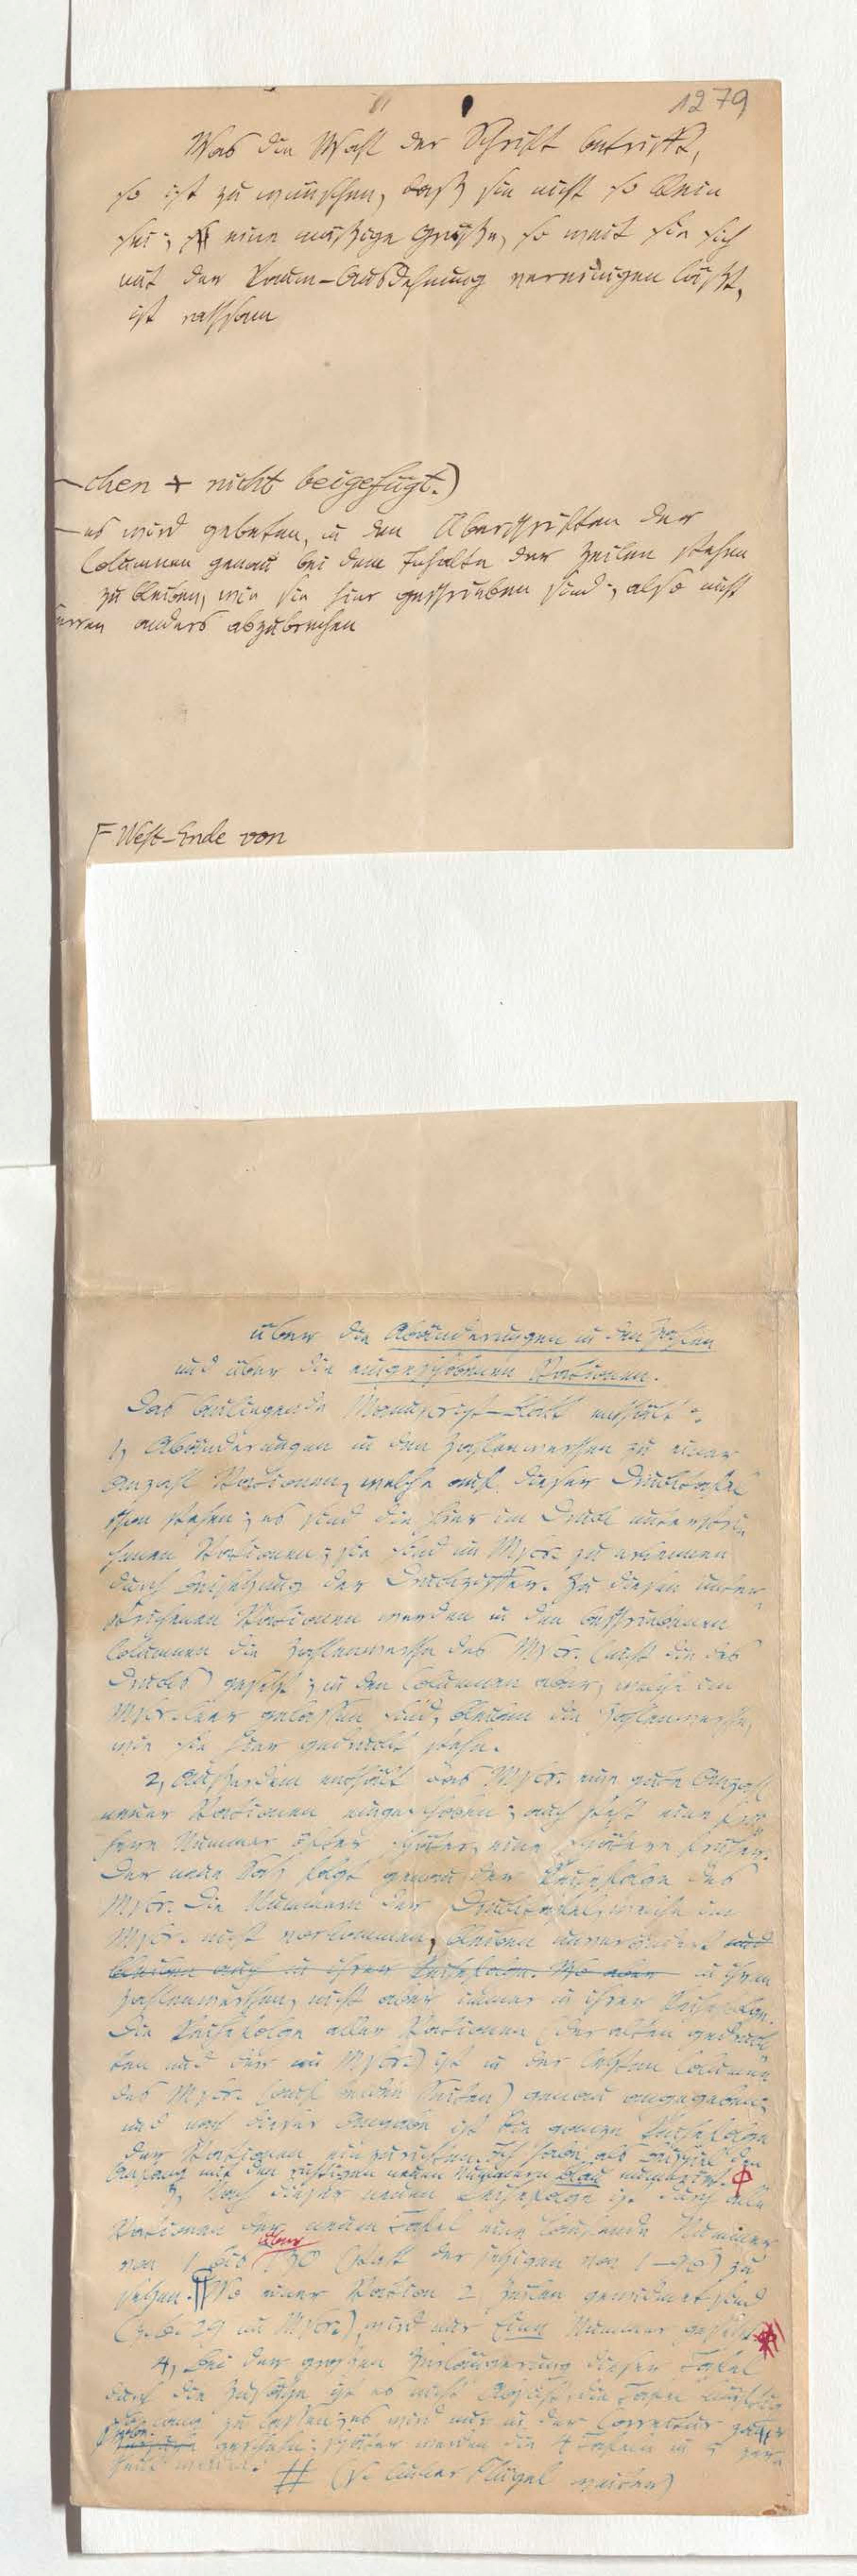 1279
Was die Wahl der Schrift betrifft,
so ist zu wünschen, daß sie nicht so klein
sei; eine mäßige Größe, so weit sie sich
mit der Raum-Ausdehnung vereinigen läßt,
ist rathsam
chen + nicht beigefügt.)
es wird gebeten, in den Überschriften der
Columnen genau bei dem Inhalte der Zeilen stehen
zu bleiben, wie sie hier geschrieben sind; also nicht
anders abzubrechen
West-Ende von
über die Abänderungen in den Zahlen
und über die eingeschobenen Stationen.
Das beiliegende Manuscript-Blatt enthält:
1, Abänderungen in den Zahlenwerthen zu einer
Anzahl Stationen, welche auf dieser Drucktafel
schon stehen; es sind die hier im Druck unterstri-
chenen Stationen; sie sind im Mscr. zu erkennen
durch Beisetzung der Druckziffer. Zu diesen unter-
strichenen Stationen werden in den beschriebenen
Columnen die Zahlenwerthe des Mscr. (nicht die des
Drucks) gesetzt; in den Columnen aber, welche im
Mscr. leer gelassen sind, bleiben die Zahlenwerthe,
wie sie hier gedruckt stehn.
2, Außerdem enthält das Mscr. eine gute Anzahl
neuer Stationen eingeschoben; auch steht eine frü-
here Nummer öfter später, eine spätere früher.
Der neue Satz folgt genau der Reihefolge des
Mscr. Die Nummern der Drucktafel, welche im
Mscr. nicht vorkommen, bleiben unverändert und
bleiben auch in ihrer Reihefolge. Wo aber in ihren
Zahlenwerthen, nicht aber immer in ihrer Reihefolge.
Die Reihefolge aller Stationen (der alten gedruck-
ten und der im Mscr.) ist in der letzten Columne
des Mscr. (auf beiden Seiten) genau angegeben;
und nach dieser Angabe ist die ganze Reihefolge
der Stationen einzurichten. Ich habe als Beispiel den
Anfang mit den richtigen neuen Nummern blau numerirt.
3, Nach dieser neuen Reihefolge ist durch alle
Stationen der neuen Tafel eine laufende Nummer
von 1 bis (statt der jetzigen von 1-98) zu
setzen. Wo einer Station 2 Zeilen gewidmet sind
(z. B. 29 im Mscr.), wird nur Eine Nummer gesetzt
4, Bei der großen Verlängerung dieser Tafel
durch die Zusätze ist es nicht Absicht, die Tafel
zu lassen; es wird nur in der Correctur
geschehn; später werden die 4 Tafeln in